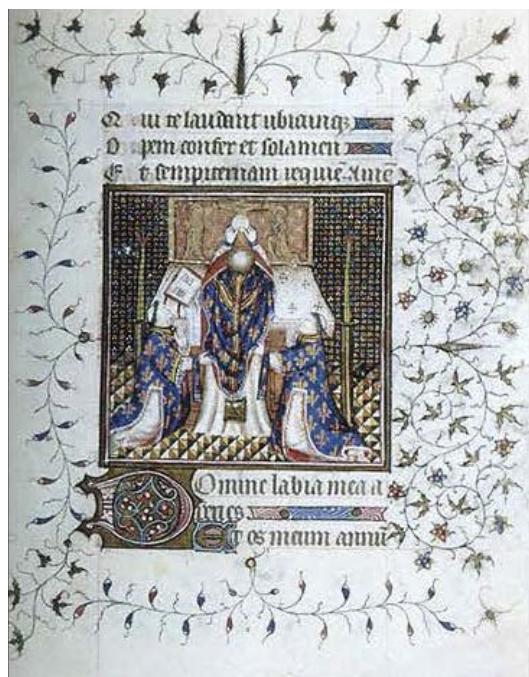 Qui te laudant ubicunq3
Opem confer et solamen
Et sempiternam requiē. Amē
Domine labia mea a
peries
Et os meum annū